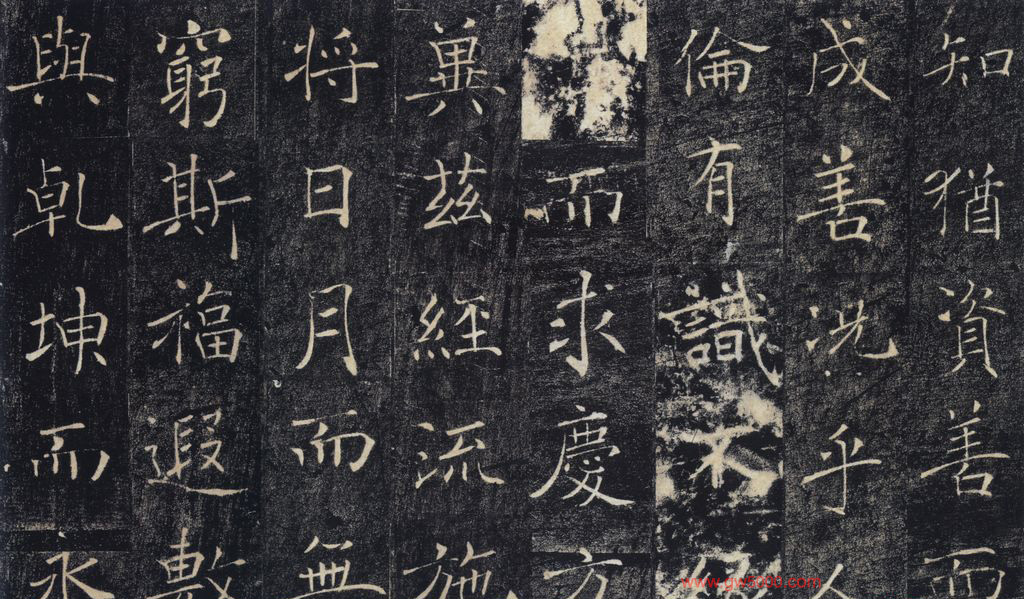 知猶資善而
成善況乎人
倫有識不緣
而求慶方
冀茲經流施
将日月而無
窮斯福遐敷
與乾坤而永